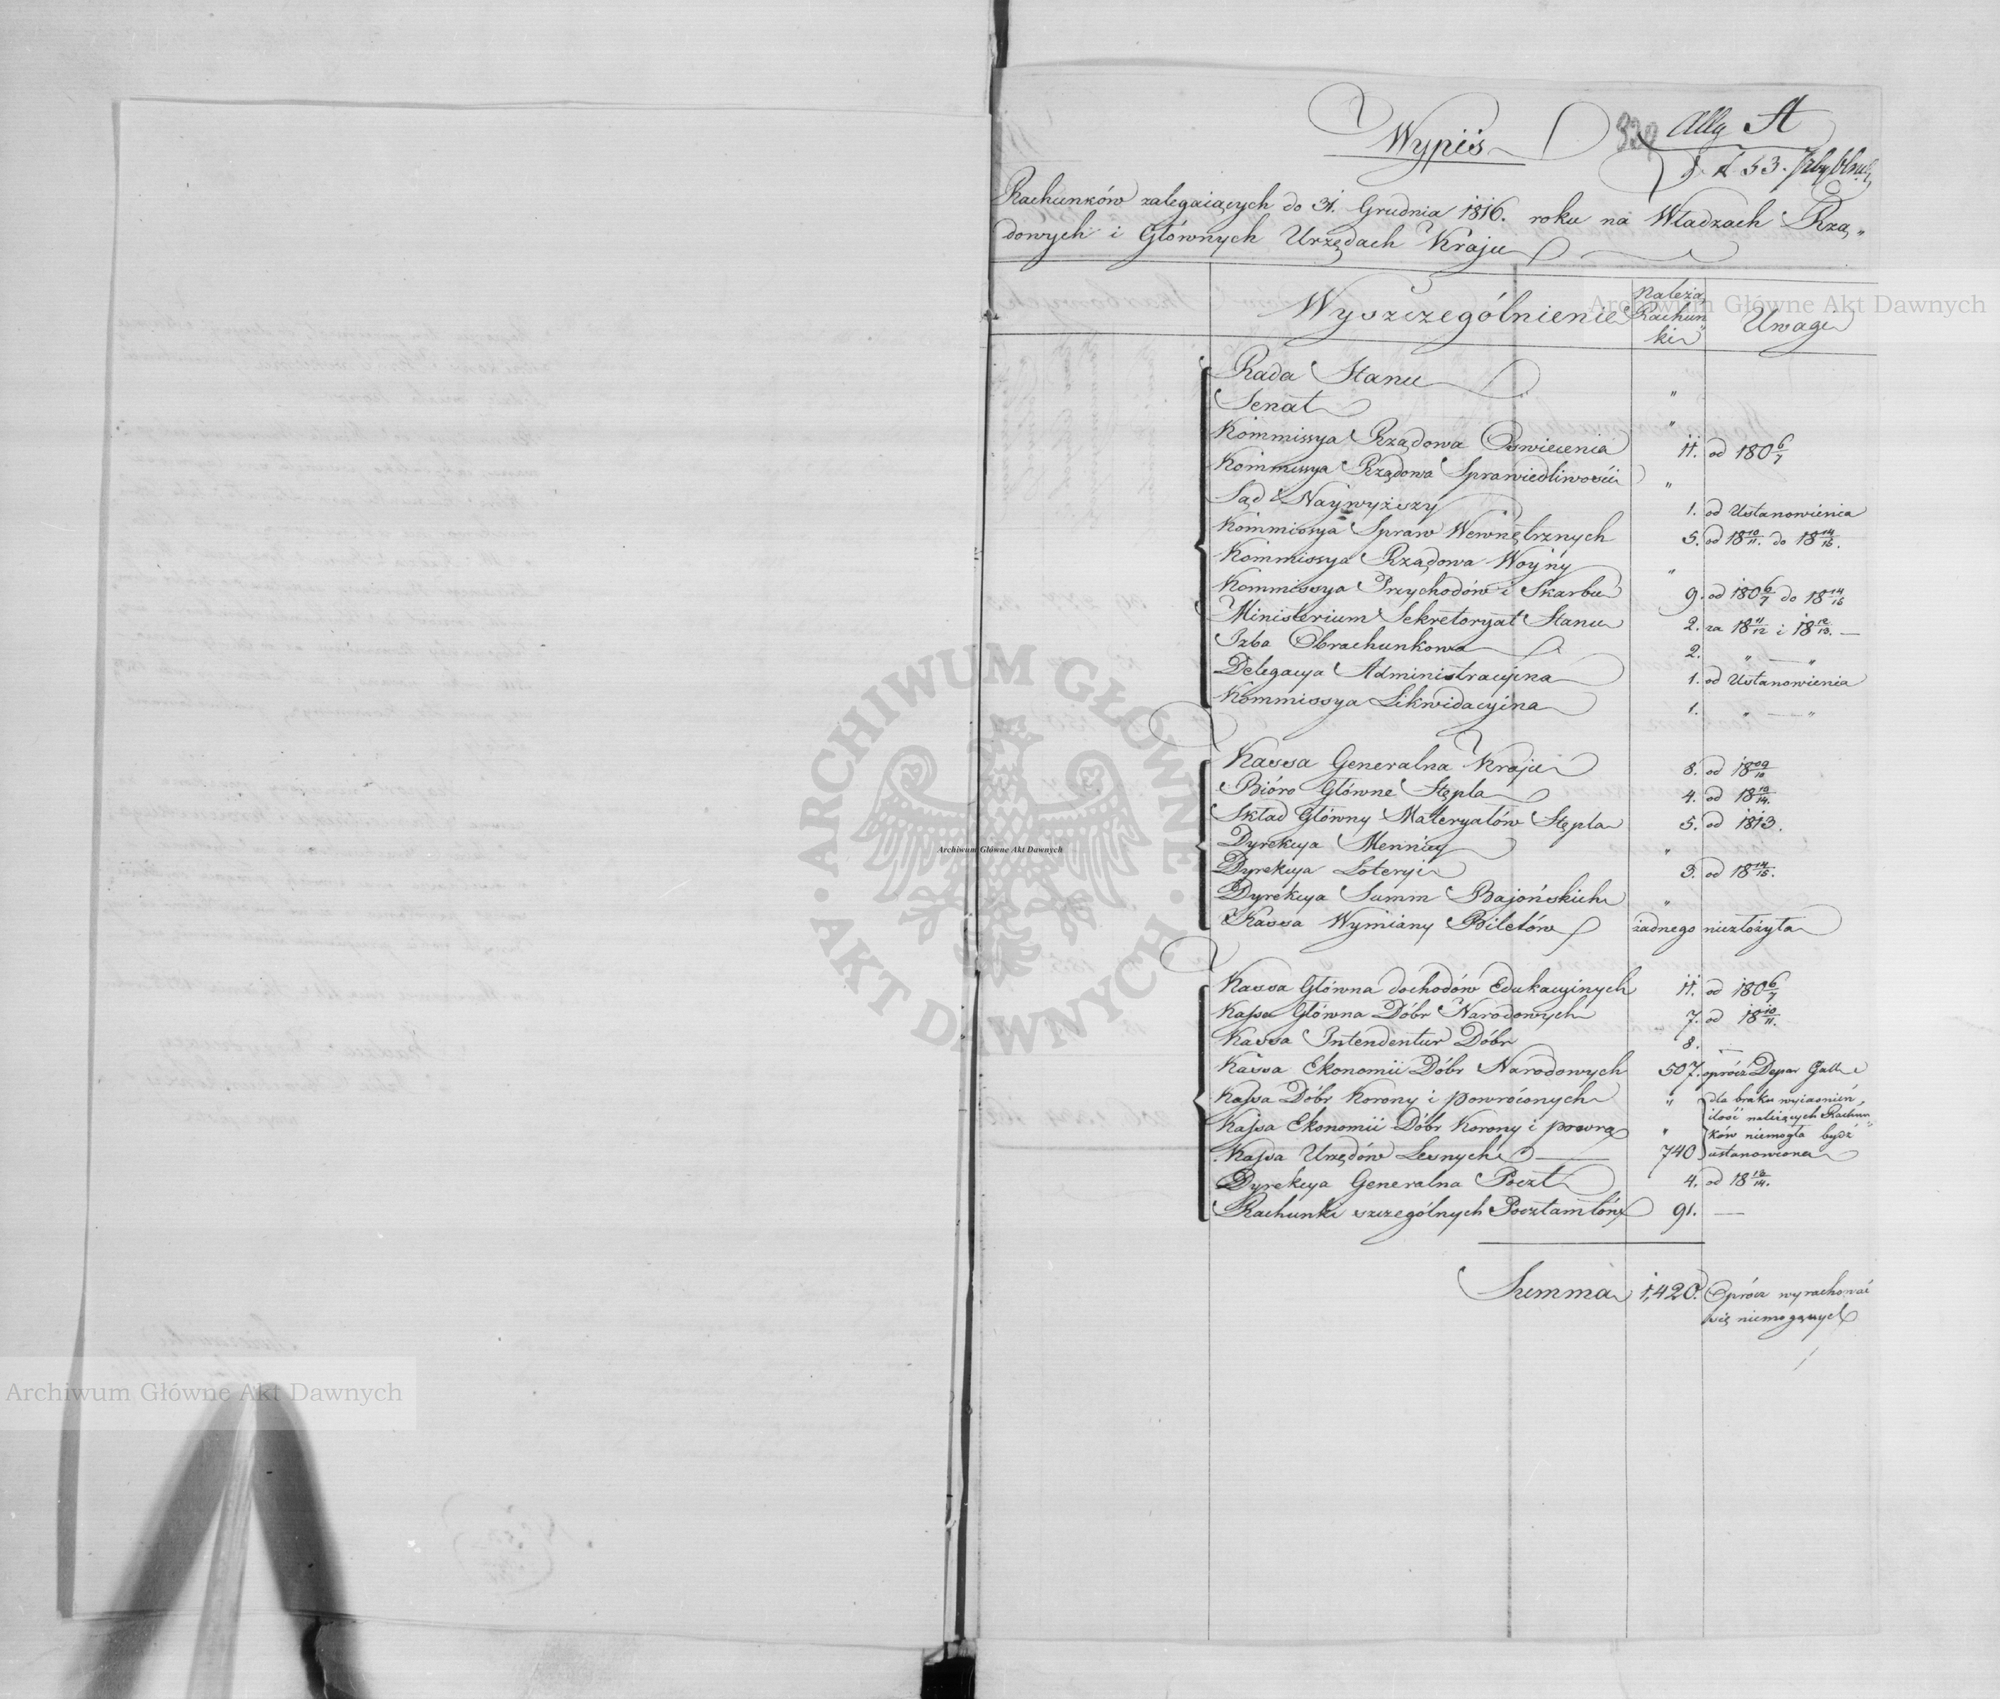 Wypis
339
Allg A
53.
Rachunków zalegaiących do 31. Grudnia 1816. roku na Władzach Rzą„
dowych i Głównych Urzędach Kraju
Wyszczególnienie | Należą Rachun„ ki | Uwagi
Rada Stanu "
Senat "
Kommissya Rządowa Oswiecenia 11. od 180 6/7
Kommissya Rządowa Sprawiedliwości "
Sąd Naywyższy 1. od Ustanowienia
Kommissya Spraw Wewnętrznych 5. od 18 10/11. do 18 14/15.
Kommissya Rządowa Woyny "
Kommissya Przychodów i Skarbu 9. od 180 6/7 do 18 14/15
Ministerium Sekretoryat Stanu 2. za 18 11/12 i 18 12/13. —
Izba Obrachunkowa 2. " — "
Delegacya Administracyina 1. od Ustanowienia
Kommissya Likwidacyina 1. " — "
Kassa Generalna Kraju 8. od 18 09/10
Bióro Główne Stępla 4. od 18 13/14.
Skład Główny Materyałów Stępla 5. od 1813.
Dyrekcya Mennicy "
Dyrekcya Loteryi 3. od 18 14/15.
Dyrekcya Summ Bajońskich "
Kassa Wymiany Biletów żadnego niezłożyła
Kassa Główna dochodów Edukacyinych 11. od 180 6/7
Kassa Główna Dóbr Narodowych 7. od 18 10/11.
Kassa Intendentur Dóbr 8. —
Kassa Ekonomii Dóbr Narodowych 507. oprócz Depar Gall
Kassa Dóbr Korony i powróconych " dla braku wyiasnień,
ilość należących Rachun„
Kassa Ekonomii Dóbr Korony i powró " ków niemogła bydź
Kassa Urzędów Lesnych — 740 ustanowiona
Dyrekcya Generalna Poczt 4. od 18 13/14.
Rachunki szczególnych Pocztamtów 91. —
Summa 1,420. Oprócz wyrachować
się niemogących
Archiwum Główne Akt Dawnych
Archiwum Główne Akt Dawnych
Archiwum Główne Akt Dawnych
ARCHIWUM GŁÓWNE · AKT DAWNYCH ·